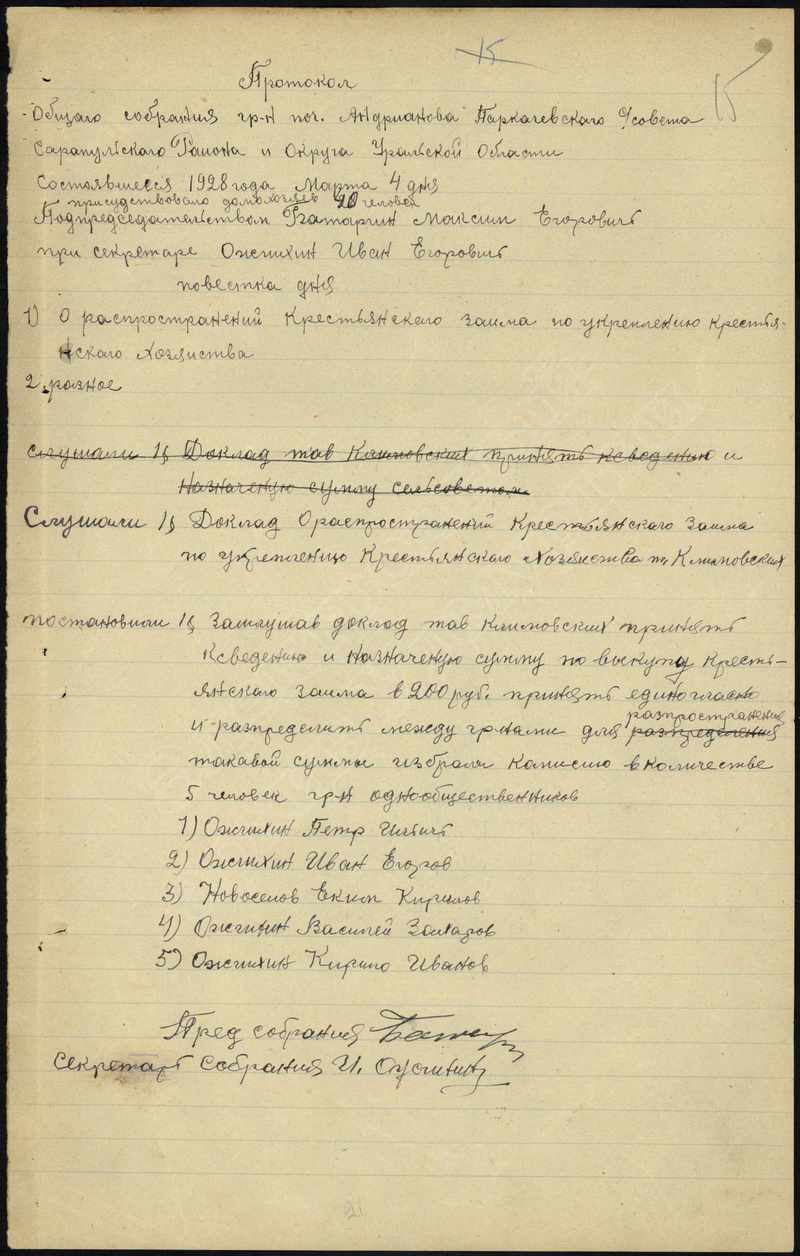 15
15
Протокол
Общаго собрания гр-н поч. Андрианова Паркачевского с/совета
Сарапульского Района и Округа Уральской Области
Состоявшееся 1928 года Марта 4 дня
присудствовало домохозяев 20 человек
Подпредседательством Максим Егорович
при секретаре Ожгихин Иван Егорович
повестка дня
1) О распространений Крестьянского заима по укреплению крестья-
нского Хозяиства
2. разное
слушали 1§ Доклад тов Климовских принять ксведению и
Назначеную сумму сельсоветом.
Слушали 1§ Доклад Ораспространений Крестьянского Заима
по укреплению Крестьянского Хозяиства т. Климовских
постановили 1§ Заслушав доклад тов Климовских принять
Ксведению и назначеную сумму по выкупу Кресть-
янского заима в 200 руб. принять единогласно
распространения
и разпределить между гр-нами для разпределения
таковой суммы избрали комисию вколичестве
5 человек гр-н однообщественников
1) Ожгихин Петр Ильич
2) Ожгихин Иван Егоров
3) Новоселов Еким Кирилов
4) Ожгихин Василей Захаров
5) Ожгихин Кирило Иванов
Пред собрания
Секретарь Собрания И. Ожгихин